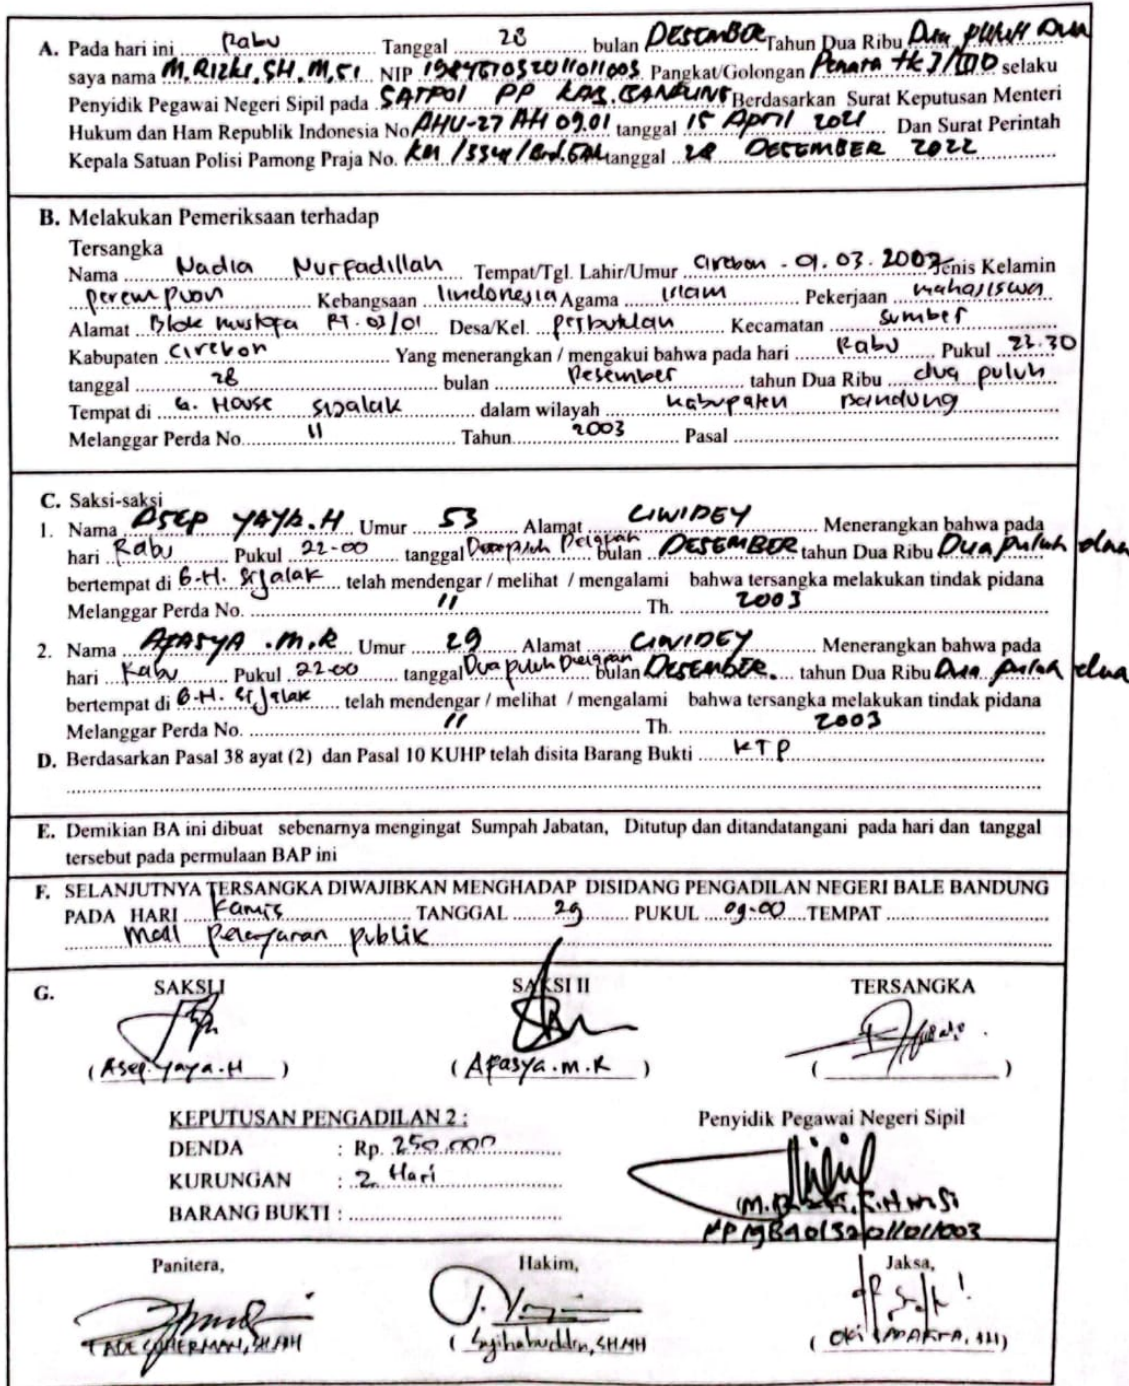 A. Pada hari ini Rabu Tanggal 28 bulan DESEMBER Tahun Dua Ribu Dua puluh Dua
saya nama M. Rizki, SH, M,Si NIP Pangkat/Golongan Penata tk I/IIID selaku
Penyidik Pegawai Negeri Sipil pada SATPOl PP KAB. BANDUNG Berdasarkan Surat Keputusan Menteri
Hukum dan Ham Republik Indonesia No AHU-27 AH 09.01 tanggal 15 April 2021 Dan Surat Perintah
Kepala Satuan Polisi Pamong Praja No. tanggal 28 DESEMBER 2022
B. Melakukan Pemeriksaan terhadap
Tersangka
Nama Nadia Nurfadillah Tempat/Tgl. Lahir/Umur Cirebon - 01. 03. 2003 Jenis Kelamin
perempuan Kebangsaan Iindonesia Agama islam Pekerjaan mahasiswa
Alamat Blok mustofa RT. 03/01 Desa/Kel. perbutulan Kecamatan Sumber
Kabupaten Cirebon Yang menerangkan / mengakui bahwa pada hari Rabu Pukul 23.30
tanggal 28 bulan Desember tahun Dua Ribu dua puluh
Tempat di G. House sijalak dalam wilayah kabupaten Bandung
Melanggar Perda No. 11 Tahun 2003 Pasal
C. Saksi-saksi
1. Nama ASEP YAYA.H Umur 53 Alamat CIWIDEY Menerangkan bahwa pada
hari Rabu Pukul 22-00 tanggal Dua puluh Delapan bulan DESEMBER tahun Dua Ribu Dua puluh dua
bertempat di G.H. Sijalak telah mendengar / melihat / mengalami bahwa tersangka melakukan tindak pidana
Melanggar Perda No. 11 Th. 2003
2. Nama AFASYA .M.R Umur 29 Alamat CIWIDEY Menerangkan bahwa pada
hari Rabu Pukul 22-00 tanggal Dua puluh Delapan bulan DESEMBER. tahun Dua Ribu Dua puluh dua
bertempat di G.H. Sijalak telah mendengar / melihat / mengalami bahwa tersangka melakukan tindak pidana
Melanggar Perda No. 11 Th. 2003
D. Berdasarkan Pasal 38 ayat (2) dan Pasal 10 KUHP telah disita Barang Bukti KTP
E. Demikian BA ini dibuat sebenarnya mengingat Sumpah Jabatan, Ditutup dan ditandatangani pada hari dan tanggal
tersebut pada permulaan BAP ini
F. SELANJUTNYA TERSANGKA DIWAJIBKAN MENGHADAP DISIDANG PENGADILAN NEGERI BALE BANDUNG
PADA HARI Kamis TANGGAL 29 PUKUL 09-00 TEMPAT
Mall Pelayanan publik
G. SAKSI I SAKSI II TERSANGKA
(Asep. Yaya.H) (Afasya.m.R) ( )
KEPUTUSAN PENGADILAN 2 : Penyidik Pegawai Negeri Sipil
DENDA : Rp. 250.000
KURUNGAN : 2 Hari
BARANG BUKTI :
Panitera, Hakim, Jaksa,
(Syihabuddin, SH.MH